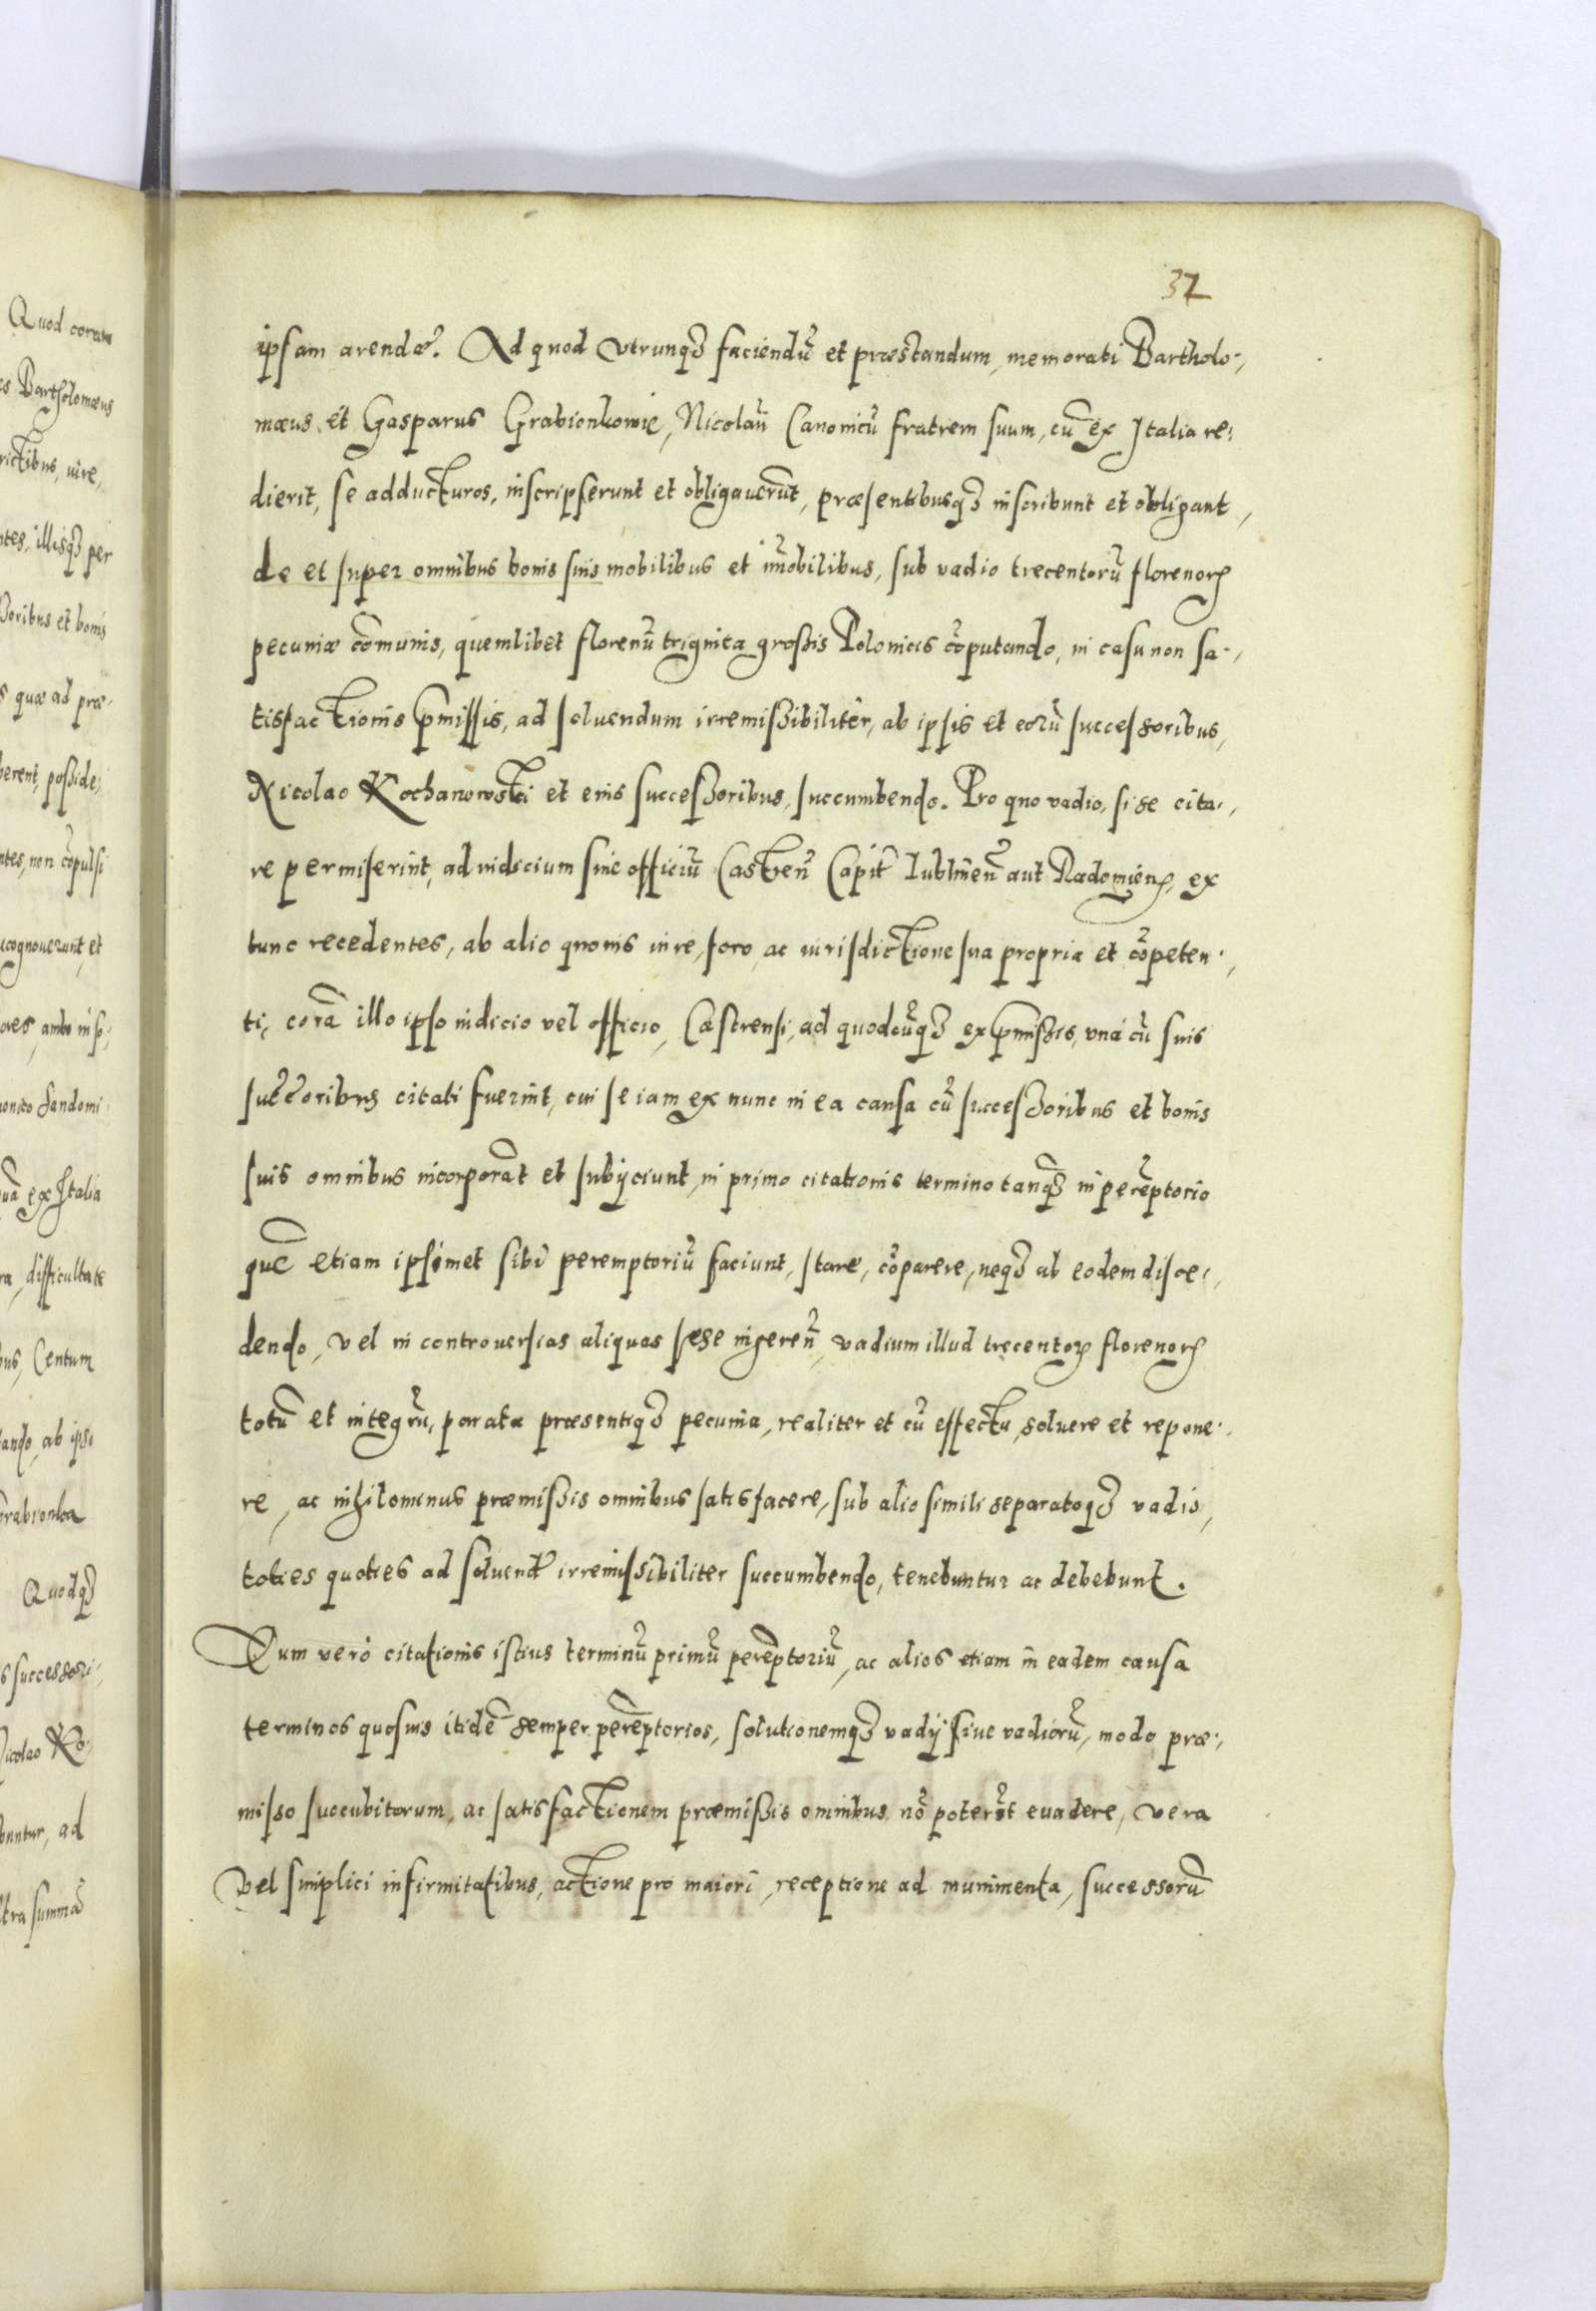 37
ipsam arendæ. Ad quod vtrunqꝫ faciendũ et præstandum, memorati Bartholo-,
mæus et Gasparus Grabionkowie, Nicolaũ Canonicũ fratrem suum, cũ ex Italia re:
dierit, se adducturos, inscripserunt et obligauerũt, præsentibusqꝫ inscribunt et obligant,
de et super omnibus bonis suis mobilibus et im̃obilibus, sub vadio trecentorũ florenorꝝ
pecuniæ com̃unis, quemlibet florenũ triginta grossis Polonicis cõputando, in casu non sa-,
tisfactionis p̃missis, ad soluendum irremissibiliter, ab ipsis et eorũ successoribus,
Nicolao Kochanowski et eius successoribus, succumbendo. Pro quo vadio, si se cita-,
re permiserint, ad iudicium siue officiũ Castreñ Capit̃ lublineñ aut Radomienꝭ, ex
tunc recedentes, ab alio quouis iure, foro, ac iurisdictione sua propria et cõpeten-,
ti, corã illo ipso iudicio vel officio, Castrensi, ad quodcũqꝫ ex p̃missis, vná cũ suis
succ̃oribus citati fuerint, cui se iam ex nunc in ea causa cũ successoribus et bonis
suis omnibus incorporãt et subijciunt, in primo citationis termino tanqꝫ in perẽptorio
quẽ etiam ipsimet sibi peremptoriũ faciunt, stare, cõparere, neqꝫ ab eodem disce-,
dendo, vel in controuersias aliquas sese ingereñ, vadium illud trecentorꝝ florenorꝝ
totũ et integrũ, parata præsentiqꝫ pecunia, realiter et cũ effectu, soluere et repone-
re, ac nihilominus præmissis omnibus satisfacere, sub alio simili separatoqꝫ vadio,
toties quoties ad soluend̃ irremissibiliter succumbendo, tenebuntur ac debebunt.
Dum verò citationis istius terminũ primũ perẽptoriũ, ac alios etiam in eadem causa
terminos quosuis itidẽ semper perẽptorios, solutionemqꝫ vadij siue vadiorũ, modo præ-,
misso succubitorum, ac satisfactionem præmissis omnibus nõ poterũt euadere, vera
vel simplici infirmitatibus, actione pro maiori, receptione ad munimenta, successorũ